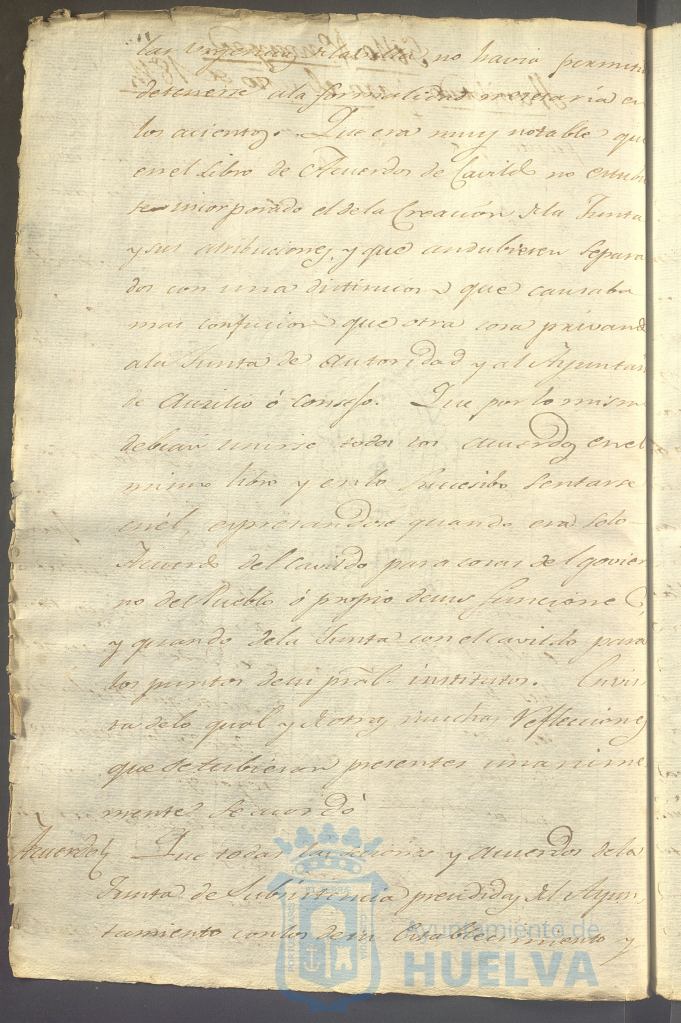 no havia permitido
detenerse ala formalidad necesaria en
los acientos. Que era muy notable que
en el Libro de Acuerdos de Cavildo no estubie
se incorporado el dela Creación dela Junta
y sus atribuciones, y que andubiesen Separa
dos con una distincion que causaba
mas confucion que otra cosa privando
ala Junta de autoridad y al Ayuntam.
de Auxilio ó consejo. Que por lo mismo
debian unirse todos los acuerdos en el
mismo libro y en lo Sucesibo Sentarse
en él, expresandose quando era solo
Acuerdo del Cavildo para cosas del govier
no del Pueblo ó propio desus funciones
y quando dela Junta con el cavildo para
los puntos desu pral. instituto. Envis
ta delo qual y de otras muchas Reflecciones
que se tubieron presentes unanime
mente se acordó
Acuerdo Que todas las y acuerdos dela
Junta de Subsistencia presididas del Ayun
tamiento con los desu Establecimiento y
Ayuntamiento de
HUELVA